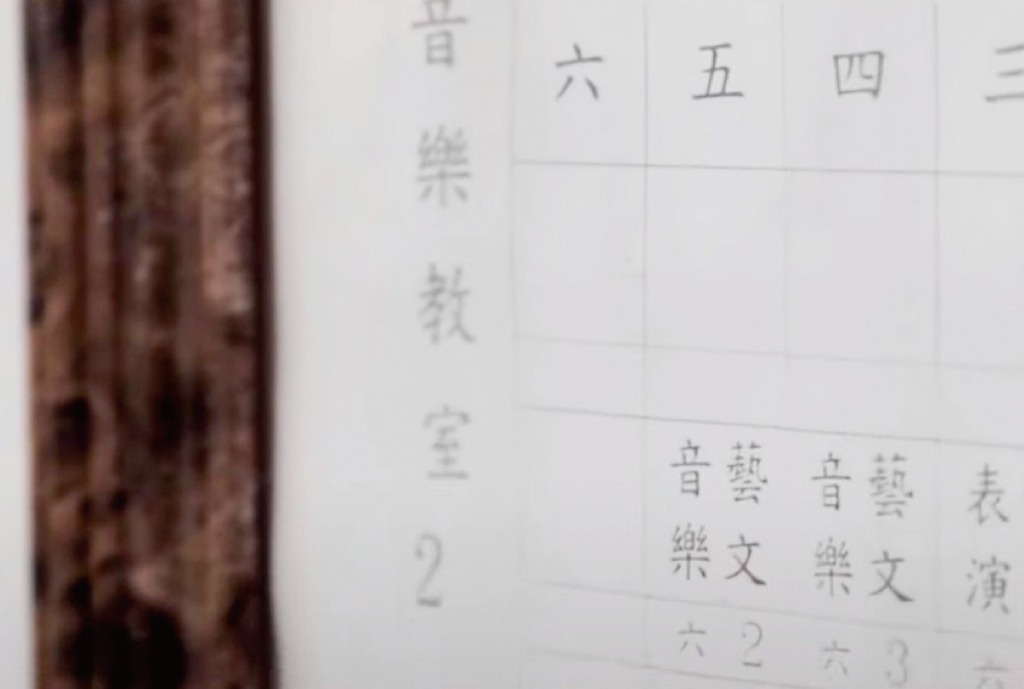 三 四 五 六
表演
藝文
音樂
藝文
音樂
六
3 六
2 六
音樂教室2